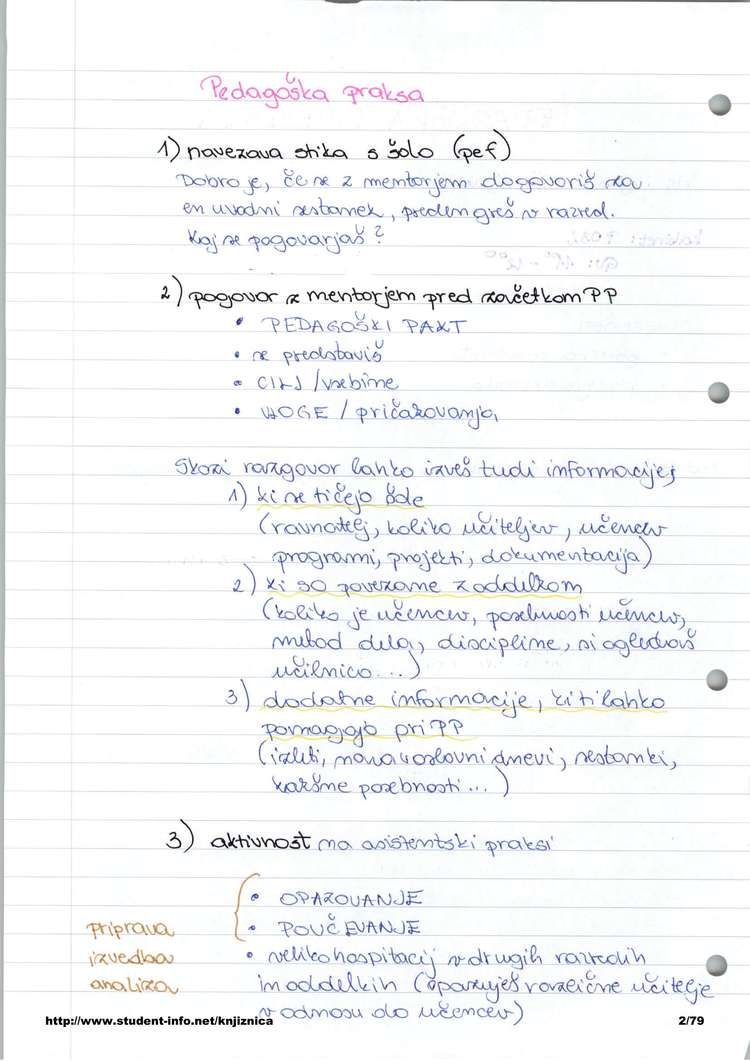 Pedagoška praksa
1) navezava stika s šolo (pef)
Dobro je, če se z mentorjem dogovoriš za
en uvodni sestanek, preden greš v razred.
Kaj se pogovarjaš?
2) pogovor z mentorjem pred začetkom PP
• PEDAGOŠKI PAKT
• se predstaviš
• CILJ / vsebine
• VLOGE / pričakovanja,
Skozi razgovor lahko izveš tudi informacije;
1) ki se tičejo šole
(ravnatelj, koliko učiteljev, učencev
programi, projekti, dokumentacija)
2) ki so povezane z oddelkom
(koliko je učencev, posebnosti učencev,
metod dela, discipline, si ogledaš
učilnico...)
3) dodatne informacije, ki ti lahko
pomagajo pri PP
(izleti, naravoslovni dnevi, sestanki,
kakšne posebnosti...)
3) aktivnost na asistentski praksi
• OPAZOVANJE
priprava • POUČEVANJE
izvedba • veliko hospitacij v drugih razredih
analiza in oddelkih (opazuješ različne učitelje
v odnosu do učencev)
http://www.student-info.net/knjiznica 2/79